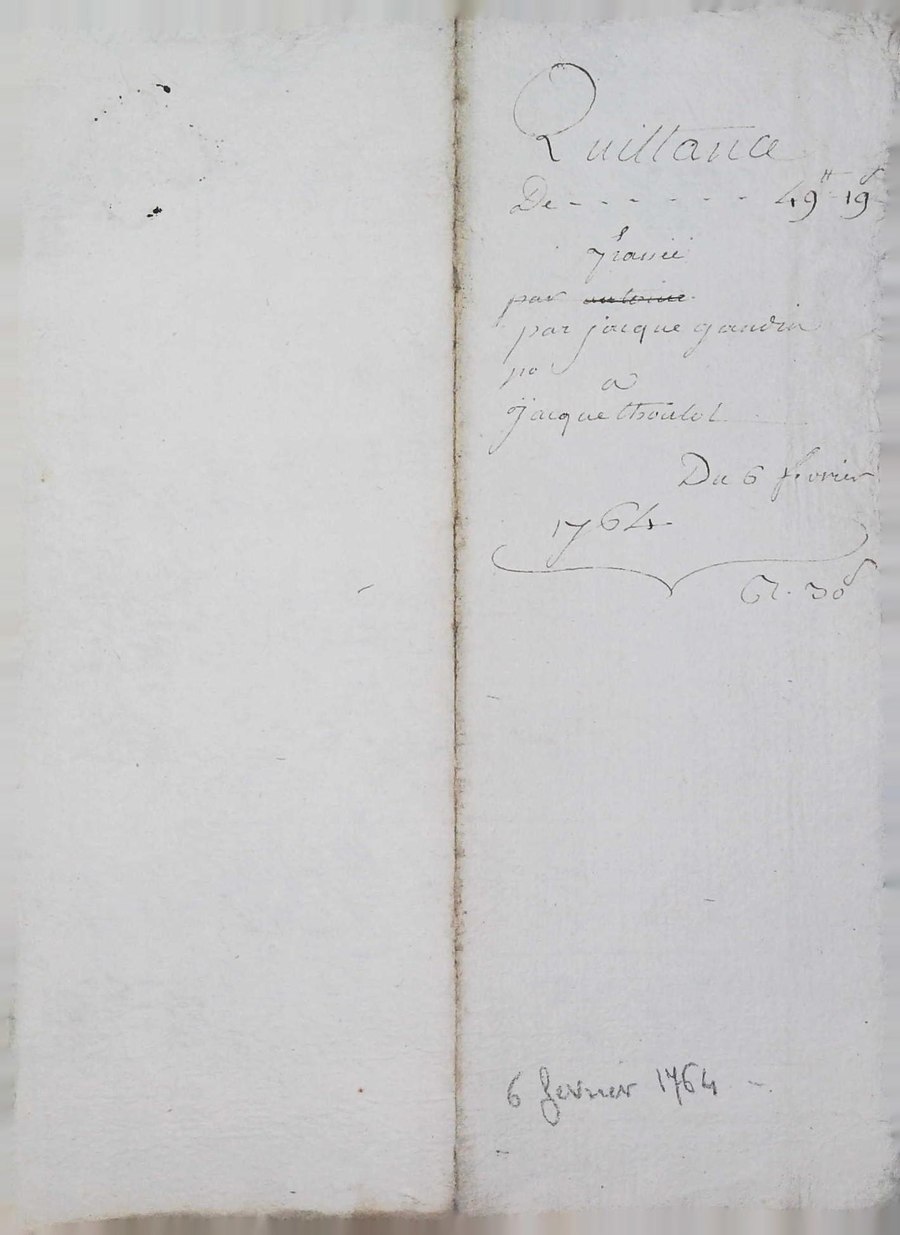 Quittance
De - - - - - - 49tt 19s
passée
par antoine
par jacque gaudin
pr
a
jacque thoulot
Du 6 fevrier
1764
30s
6 fevrier 1764